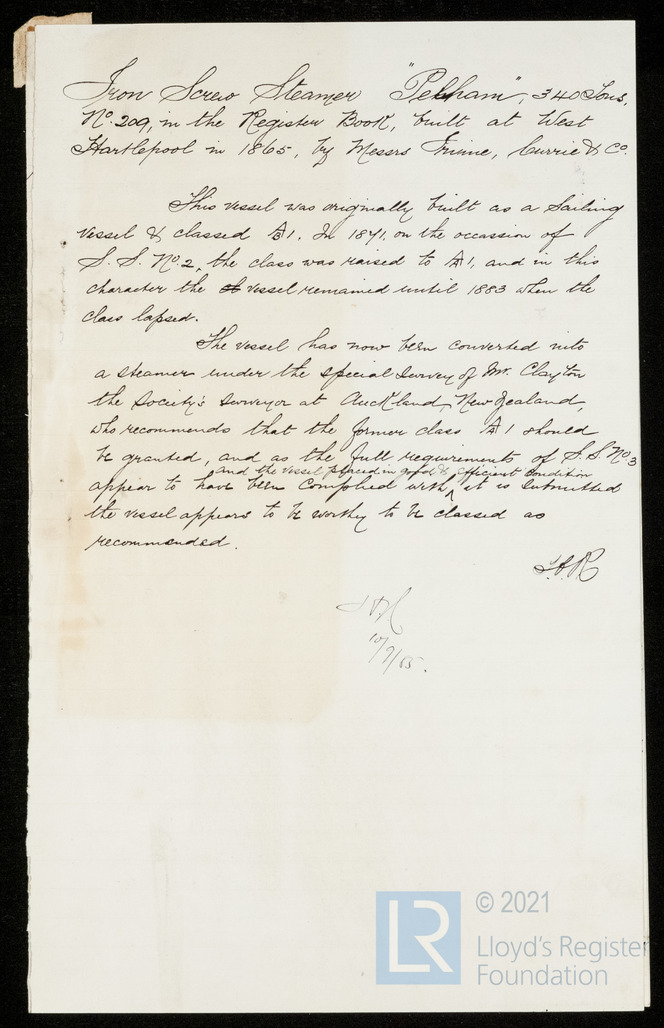 Iron Screw Steamer "Pelham", 340 Tons,
No. 209, in the Register Book, built at West
Hartlepool in 1865, by Messrs Irvine, Currie & Co.
This vessel was originally built as a Sailing
vessel & classed A1. In 1871, on the occassion of
S. S. No. 2, the class was raised to A1, and in this
character the vessel remained until 1883 when the
class lapsed.
The vessel has now been converted into
a steamer under the special survey of Mr. Clayton
the Society's Surveyor at Auckland, New Zealand,
who recommends that the former class A1 should
be granted, and as the full requirements of S.S. No. 3
and the vessel placed in good & efficient condition
appear to have been complied with ^ it is submitted
the vessel appears to be worthy to be classed as
recommended.
10/7/85.
LR
© 2021
Lloyd's Register
Foundation